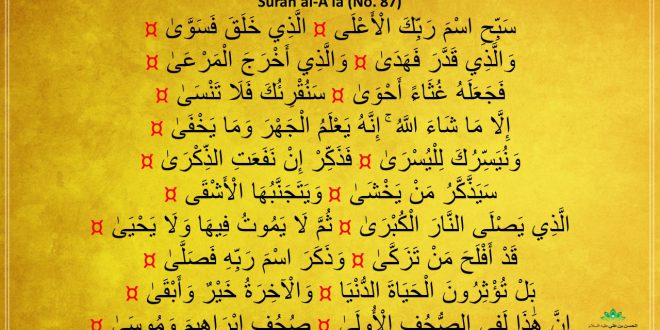 Surah al-A'la (No. 87)
سَبِّحِ اسْمَ رَبِّكَ الْأَعْلَى ¤ الَّذِي خَلَقَ فَسَوَّىٰ ¤
وَالَّذِي قَدَّرَ فَهَدَىٰ ¤ وَالَّذِي أَخْرَجَ الْمَرْعَىٰ ¤
فَجَعَلَهُ غُثَاءً أَحْوَىٰ ¤ سَنُقْرِئُكَ فَلَا تَنْسَىٰ ¤
إِلَّا مَا شَاءَ اللَّهُ ۚ إِنَّهُ يَعْلَمُ الْجَهْرَ وَمَا يَخْفَىٰ ¤
وَنُيَسِّرُكَ لِلْيُسْرَىٰ ¤ فَذَكِّرْ إِنْ نَفَعَتِ الذِّكْرَىٰ ¤
سَيَذَّكَّرُ مَنْ يَخْشَىٰ ¤ وَيَتَجَنَّبُهَا الْأَشْقَى ¤
الَّذِي يَصْلَى النَّارَ الْكُبْرَىٰ ¤ ثُمَّ لَا يَمُوتُ فِيهَا وَلَا يَحْيَىٰ ¤
قَدْ أَفْلَحَ مَنْ تَزَكَّىٰ ¤ وَذَكَرَ اسْمَ رَبِّهِ فَصَلَّىٰ ¤
بَلْ تُؤْثِرُونَ الْحَيَاةَ الدُّنْيَا ¤ وَالْآخِرَةُ خَيْرٌ وَأَبْقَىٰ ¤
إِنَّ هَٰذَا لَفِي الصُّحُفِ الْأُولَىٰ ¤ صُحُفِ إِبْرَاهِيمَ وَمُوسَىٰ ¤
الحسن بن علي عليه السلام